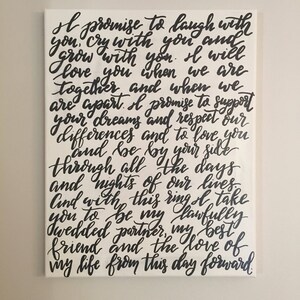 I promise to laugh with
you, cry with you and
grow with you. I will
love you when we are
together and when we
are apart. I promise to support
your dreams and respect our
differences and to love you
and be by your side
through all the days
and nights of our lives.
And with this ring I take
you to be my lawfully
wedded partner, my best
friend and the love of
my life from this day forward.